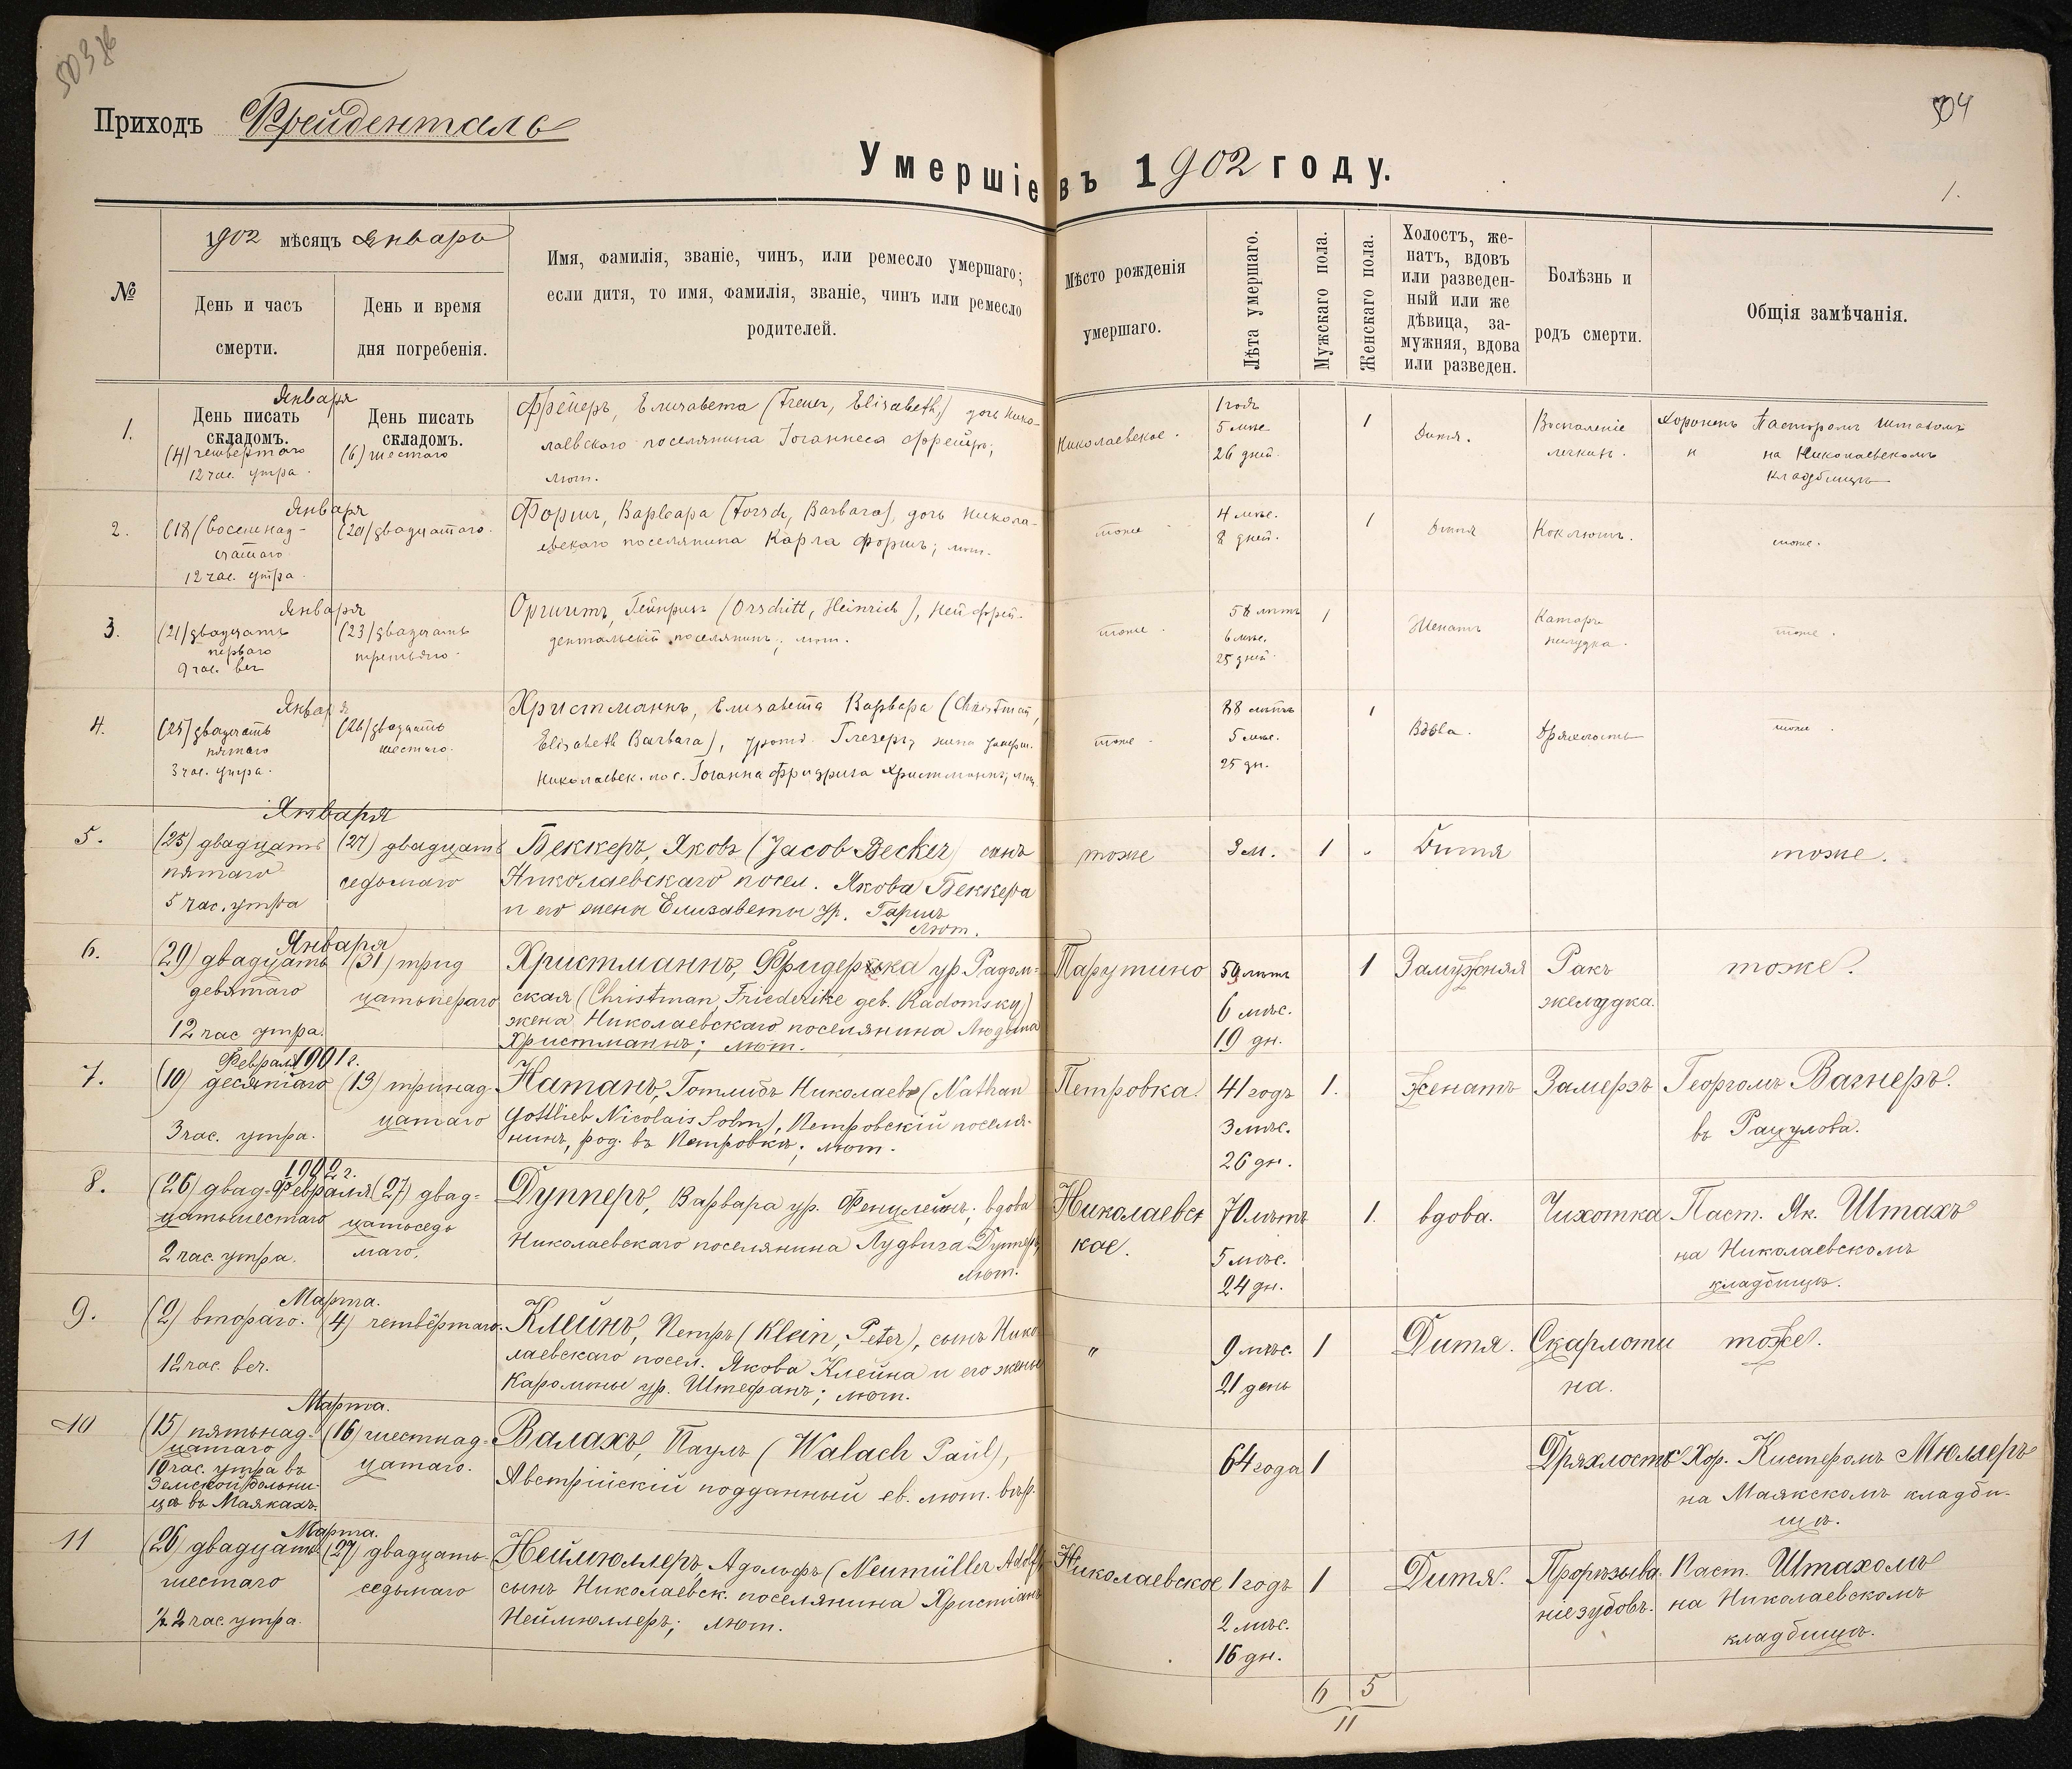 503 об
Приходъ Фрейденталь
504
Умершіе въ 1902 году.
1.
№
1902 мѣсяцъ Январь
День и часъ
смерти.
День и время
дня погребенія.
Имя, фамилія, званіе, чинъ, или ремесло умершаго;
если дитя, то имя, фамилія, званіе, чинъ или ремесло
родителей.
Мѣсто рожденія
умершаго.
Лѣта умершаго.
Мужскаго пола.
Женскаго пола.
Холостъ, же-
натъ, вдовъ
или разведен-
ный или же
дѣвица, за-
мужняя, вдова
или разведен.
Болѣзнь и
родъ смерти.
Общія замѣчанія.
1.
Января
День писать
складомъ.
(4) четвертаго
12 час. утра.
День писать
складомъ.
(6) шестаго
Фрейеръ, Елизавета (Freuer, Elisabeth,) дочь Нико-
лаевскаго поселянина Іоганнеса Фрейеръ;
лют.
Николаевское.
1 годъ
5 мѣс.
26 дней.
1
Дитя.
Воспаленіе
легкихъ.
Хороненъ Пасторомъ Штахомъ
на Николаевскомъ
кладбищѣ
2.
Января
(18) восемнад-
цатаго
12 час. утра.
(20) двадцатаго.
Форшъ, Варвара (Forsch, Barbara), дочь Никола-
евскаго поселянина Карла Форшъ; лют.
тоже
4 мѣс.
8 дней.
1
Дитя
Коклюшъ.
тоже.
3.
Января
(21) двадцать
перваго
9 час. веч
(23) двадцать
третьяго.
Оршитъ, Гейнрихъ (Orschitt, Heinrich), Ней-Фрей-
дентальскій поселянинъ; лют.
тоже.
58 лѣтъ
6 мѣс.
25 дней.
1
Женатъ
Катаръ
желудка.
тоже.
4.
Января
(25) двадцать
пятаго
3 час. утра.
(26) двадцать
шестаго.
Христманнъ, Елизавета Варвара (Christman,
Elisabeth Barbara), урожд. Глезеръ, жена умерш.
Николаевск. пос. Іоганна Фридриха Христманнъ; лют.
тоже.
88 лѣтъ
5 мѣс.
25 дн.
1
Вдова.
Дряхлость
тоже.
5.
Января
(25) двадцать
пятаго
5 час. утра
(27) двадцать
седьмаго
Беккеръ, Яковъ (Jacob Becker) сынъ
Николаевскаго посел. Якова Беккера
и его жены Елизаветы ур. Гаршъ
лют.
тоже
3 м.
1
Дитя
тоже.
6.
Января
(29) двадцать
девятаго
12 час утра.
(31) трид
цатьпераго
Христманнъ, Фридерика ур. Радом-
ская (Christman, Friederike geb. Radomsky)
жена Николаевскаго поселянина Людвига
Христманнъ; лют.
Тарутино
59 лѣтъ
6 мѣс.
19 дн.
1
Замужняя
Ракъ
желудка.
тоже.
7.
Февраля 1901 г.
(10) десятаго
3 час. утра.
(13) тринад-
цатаго
Натанъ, Готлибъ Николаевъ (Nathan
Gottlieb Nicolais Sohn), Петровскій поселя-
нинъ, род. въ Петровкѣ; лют.
Петровка.
41 годъ
3 мѣс.
26 дн.
1.
женатъ
Замерзъ
Георгомъ Вагнеръ.
въ Рацулова.
8.
1902 г.
Февраля
(26) двад-
цатьшестаго
2 час. утра.
(27) двад-
цатьседь
маго.
Дупперъ, Варвара ур. Фенцлейнъ; вдова
Николаевскаго поселянина Лудвига Дупперъ
лют.
Николаевск
кое.
70 лѣтъ
5 мѣс.
24 дн.
1.
вдова.
Чихотка
Паст. Як. Штахъ
на Николаевскомъ
кладбищѣ.
9.
Марта.
(2) втораго.
12 час. веч.
(4) четвёртаго.
Клейнъ, Петръ (Klein, Peter), сынъ Нико-
лаевскаго посел. Якова Клейна и его жены
Каролины ур. Штефанъ; лют.
"
9 мѣс.
21 день
1
Дитя.
Скарлоти
на.
тоже.
10
Марта.
(15) пятьнад-
цатаго
10 час. утра въ
Земской больни-
цѣ въ Маякахъ.
(16) шестнад-
цатаго.
Валахъ, Пауль (Walach Paul),
Австрійскій подданный ев. лют. вѣр.
64 года
1
Дряхлость
Хор. Кистеромъ Мюллеръ
на Маякскомъ кладби-
щѣ.
11
Марта.
(26) двадцать
шестаго
1/2 2 час. утра.
(27) двадцать-
седьмаго
Неймюллеръ, Адольфъ (Neumüller Adolf)
сынъ Николаевск. поселянина Христіанъ
Неймюллеръ; лют.
Николаевское
1 годъ
2 мѣс.
16 дн.
1
Дитя.
Прорѣзыва-
ніе зубовъ.
Паст. Штахомъ
на Николаевскомъ
кладбищѣ.
6 5
11